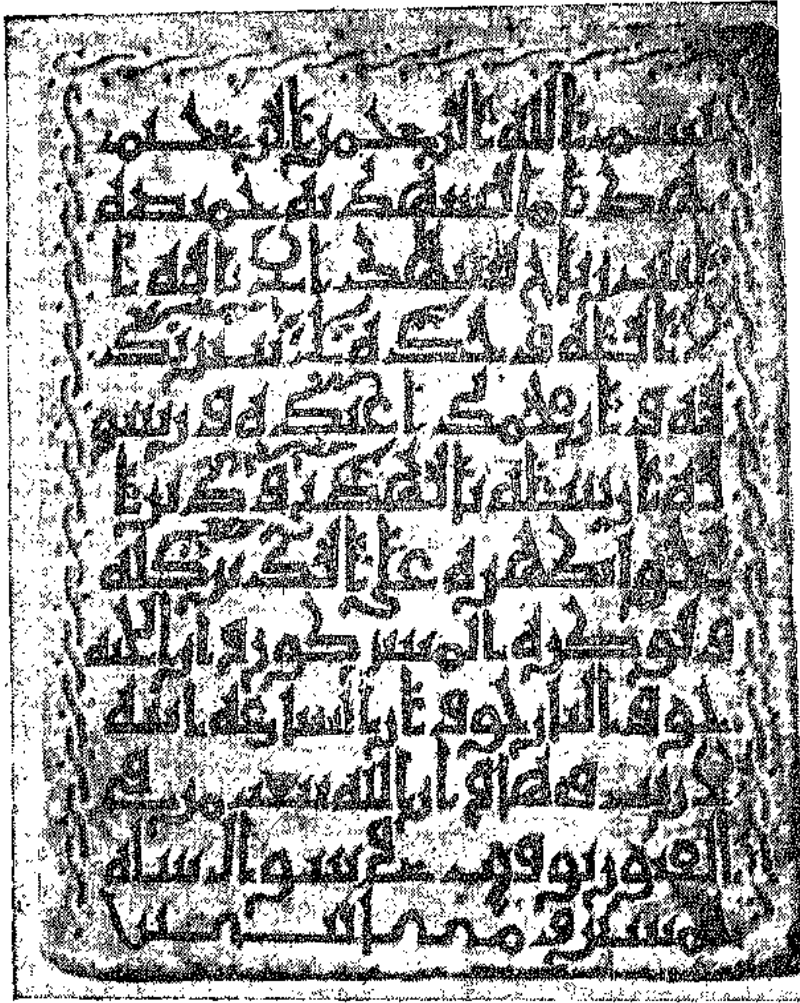 بسم الله الرحمن الرحيم
هذا ما تشهد به
تشهد ان لا اله ا
لا الله وحده لا شريك
له وان محمدا عبده ورسو
له ارسله بالهدى ودين ا
لحق ليظهره على الدين كله
ولو كره المشركون وان الجنة
حق والنار حق وان الساعة اتية
لا ريب فيها وان الله يبعث من في
القبور توفيت في شوال سنة
ومئتين